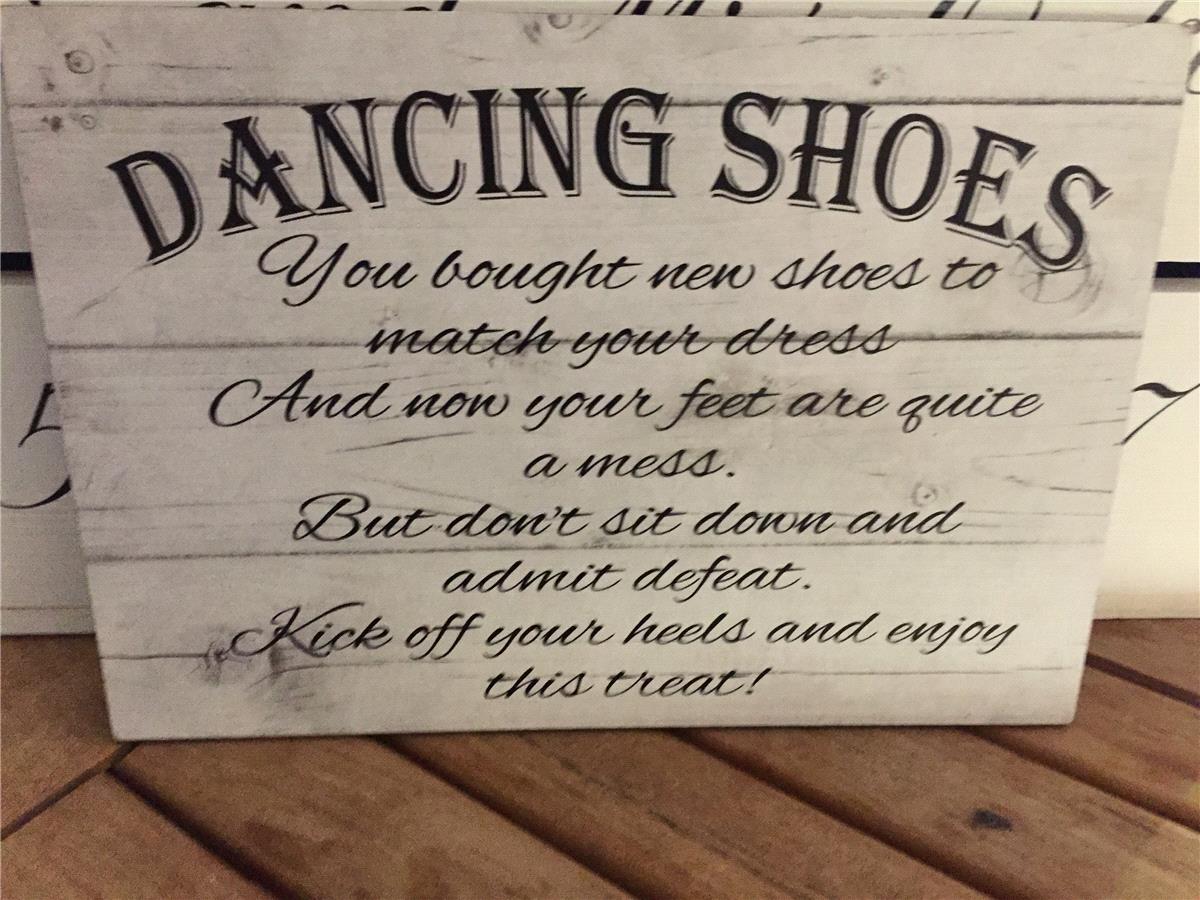 DANCING SHOES
You bought new shoes to
match your dress
And now your feet are quite
a mess.
But don't sit down and
admit defeat.
Kick off your heels and enjoy
this treat!